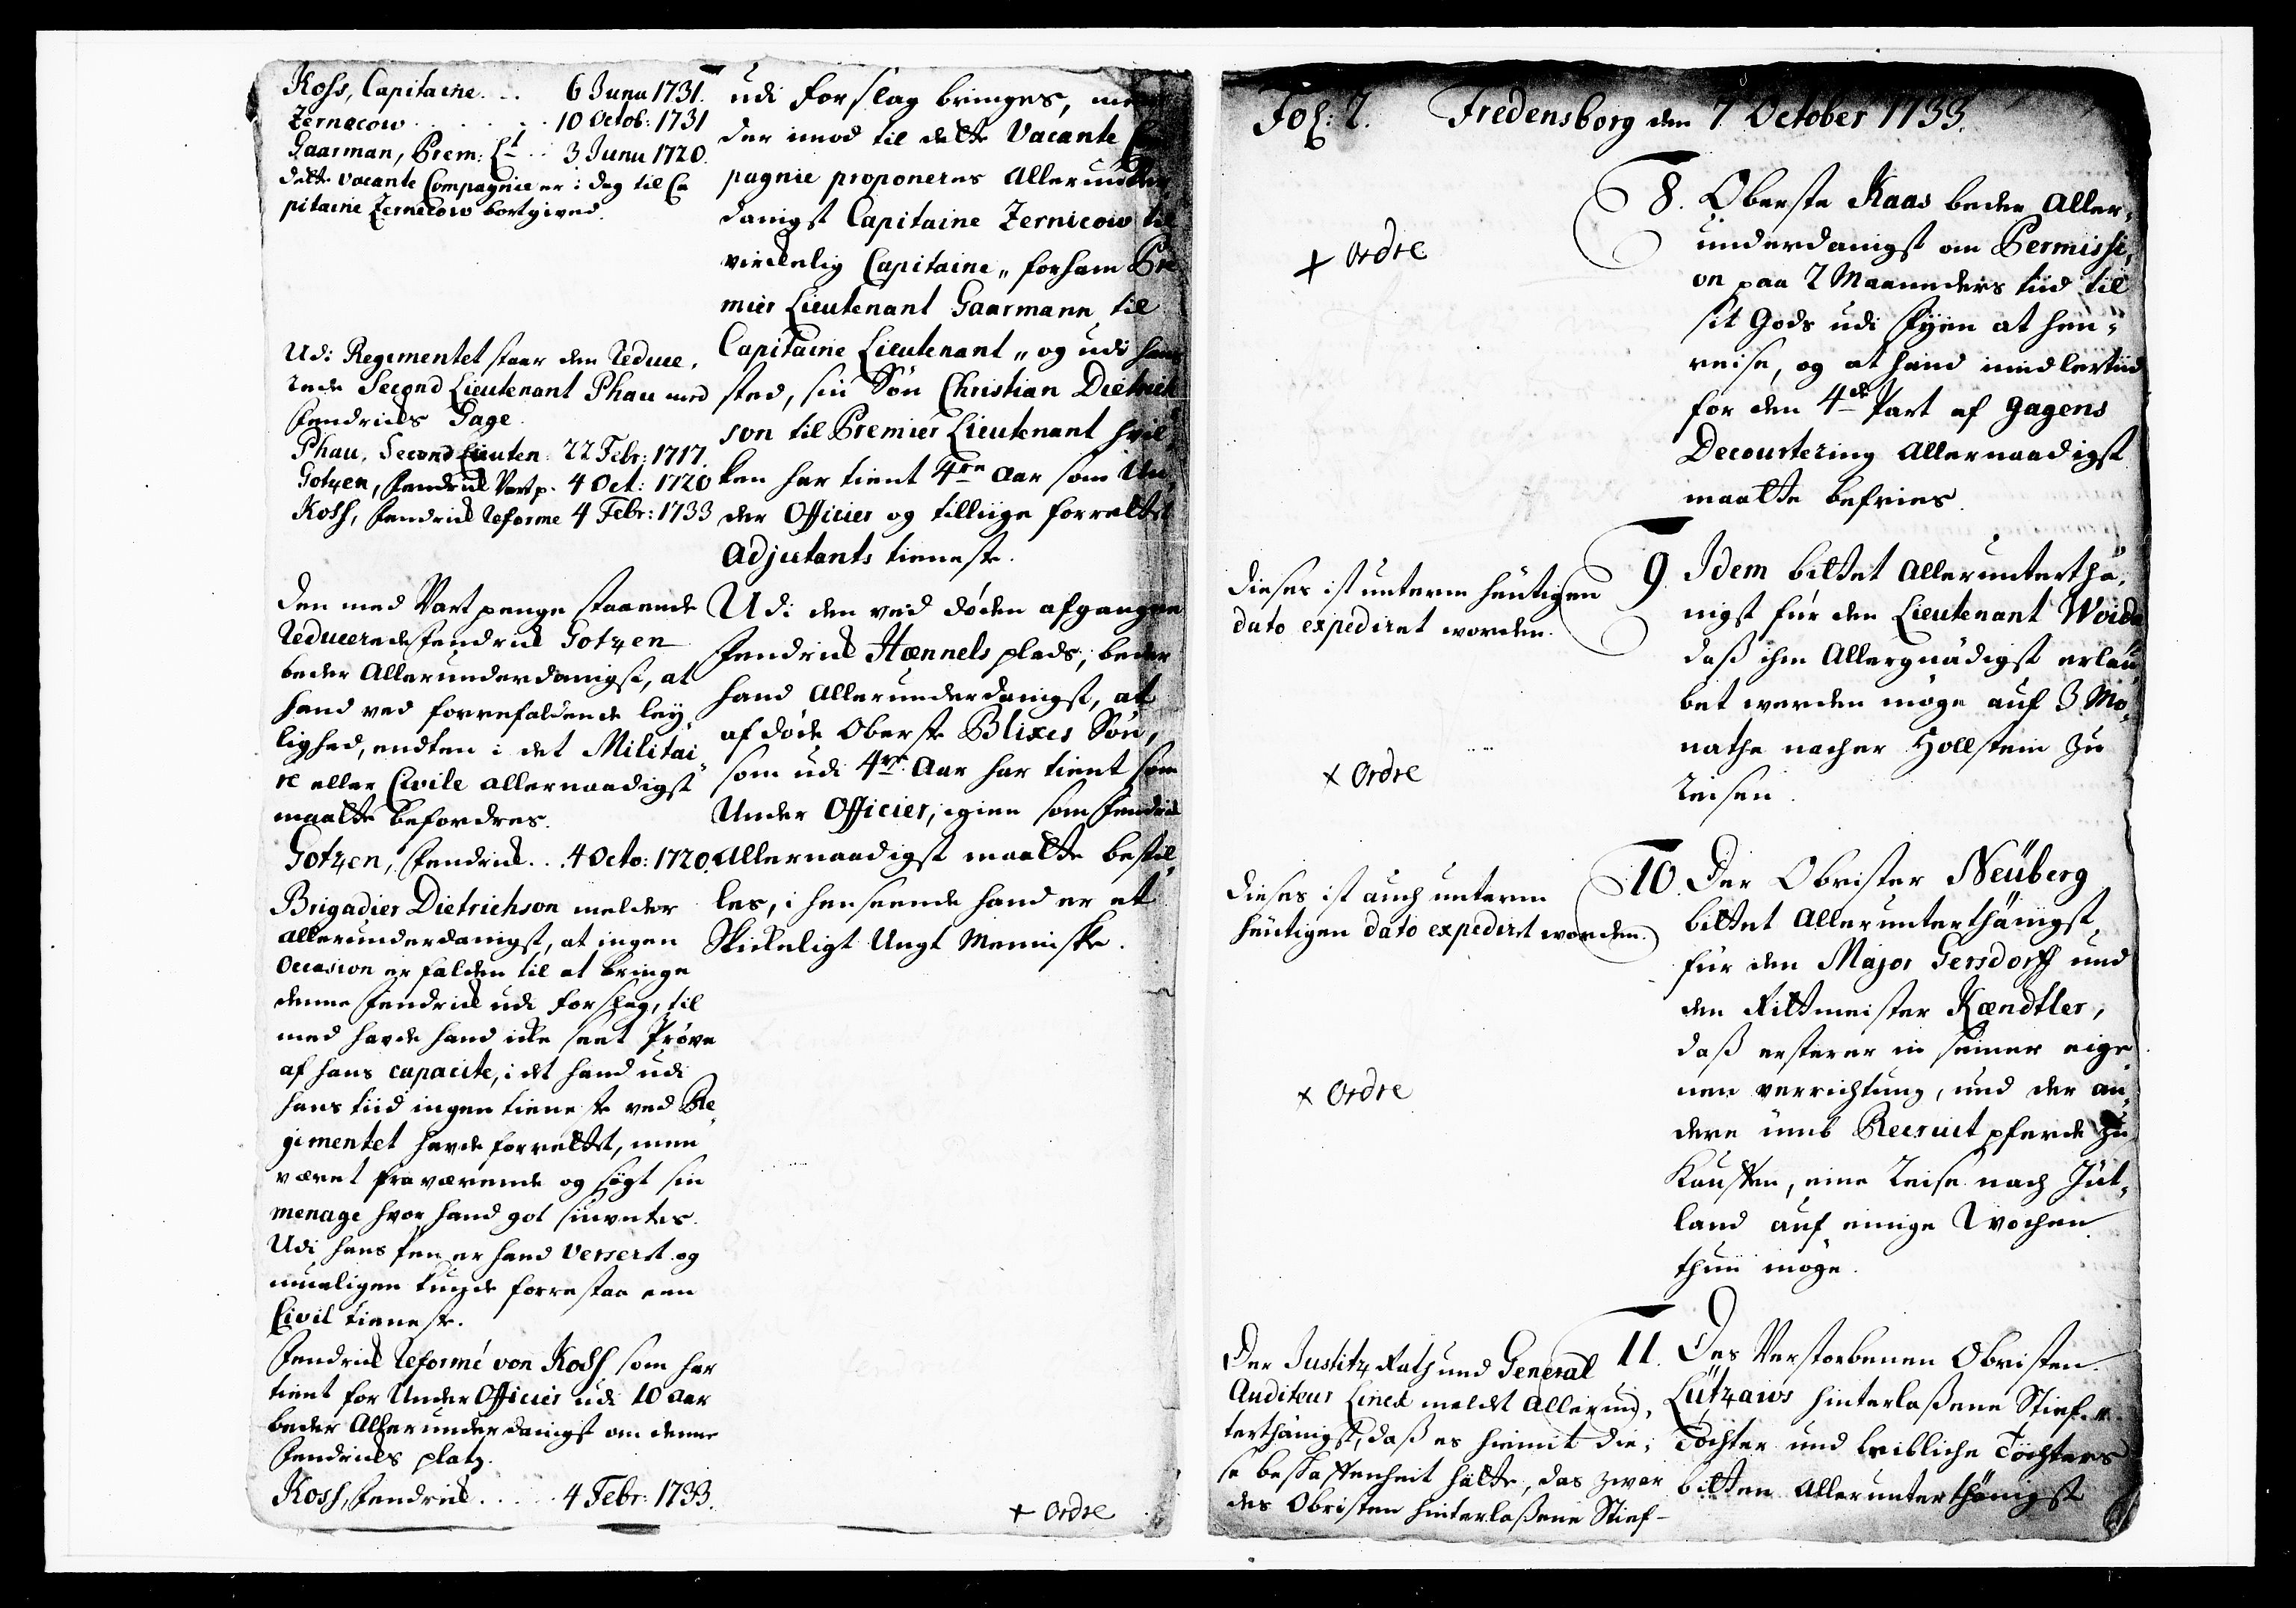 Koss, Capitaine . . . 6 Junii 1731.
Zernecow . . . . . . 10 Octob: 1731
Gaarman, Prem: Lt . . 3 Junii 1720.
dette vacante Compagnie er i dag til Ca
pitaine Zernecow bortgived.
Udi Regimentet staar den reduce,
rede Second Lieutenant Phau med
Fendricks Gage.
Phau, Second Lieuten: 22 Febr: 1717.
Gotzen, Fendrick Vartp. 4 Oct: 1720
Koss, Fendrick reforme 4 Febr: 1733
Den med Vartpenge staaende
reducerede Fendrick Gotzen
beder Allerunderdanigst, at
hand ved forrefaldende ley,
lighed, endten i det Militai,
re eller Civile allernaadigst
maatte befordres.
Gotzen, Fendrick . . . 4 Octo: 1720.
Brigadier Dietrichson melder
allerunderdanigst, at ingen
Occasion er falden til at bringe
denne Fendrick udi forslag, til
med havde hand icke seet Prøve
af hans capacite, i det hand udi
hans tiid ingen tieneste ved Re,
gimentet havde forrettet, men
været fraværende og søgt sin
menage hvor hand got siuntes.
Udi hans pen er hand versert og
mueligen kunde forrestaa een
Civil tieneste.
Fendrick reformé von Koss som har
tient for Under Officier udi 10 aar
beder Allerunderdanigst om denne
Fendricks platz.
Koss, Fendrick . . . . . 4 Febr: 1733.
udi forslag bringes, men
der imod til dette vacante Com
pagnie proponeres allerunder
danigst Capitaine Zernicow til
virckelig Capitaine, for ham Pre
mier Lieutenant Gaarmann til
Capitaine Lieutenant, og udi hans
sted, sin Søn Christian Dietrich
son til Premier Lieutenant hvil,
ken har tient 4re aar som Un,
der Officier og tillige forrettet
Adjutants tieneste.
Udi den ved døden afgangne
Fendrick Hænnels plads, beder
hand allerunderdanigst, at
afdøde Oberste Blixes Søn,
som udi 4re Aar har tient som
Under Officier, igien som Fendrick
allernaadigst maatte bestil,
les, i henseende hand er et
Skickeligt Ungt Menniske.
+ Ordre
Fol: 2. Fredensborg den 7 October 1733.
+ Ordre
8. Oberste Kaas beder aller,
underdanigst om Permissi,
on paa 2 Maaneders tiid til
sit Gods udi Fyen at hen,
reise, og at hand imidlertiid
for den 4de Part af gagens
Decourtering allernaadigst
maatte befries.
dieses ist unterm heutigen
dato expediret worden.
9. Idem bittet allerunterthä,
nigst für den Lieutenant Woida
daß ihm allergnädigst erlau
bet werden möge auf 3 Mo,
nathe nacher Hollstein zu
reisen.
+ Ordre
dieses ist auch unterm
heutigen dato expedirt worden.
10. Der Obrister Neüberg
bittet allerunterthänigst,
für den Major Gersdorff und
den Rittmeister Kændtler,
daß ersterer in seiner eige
nen verrichtung, und der an,
dere umb Recruit pferde zu
Kauffen, eine reise nach Jüt,
land auf einige Wochen
thun möge.
+ Ordre
Der Justitz Rath und General
Auditeur Linck meldet allerun,
terthänigst, daß es hiemit die,
se beschaffenheit hätte, das zwar
des Obristen hinterlaßene Stief-
11. Des Verstorbenen Obristen
Lützaws hinterlaßene Stief-
Töchter und leibliche Töchters
bitten allerunterthänigst